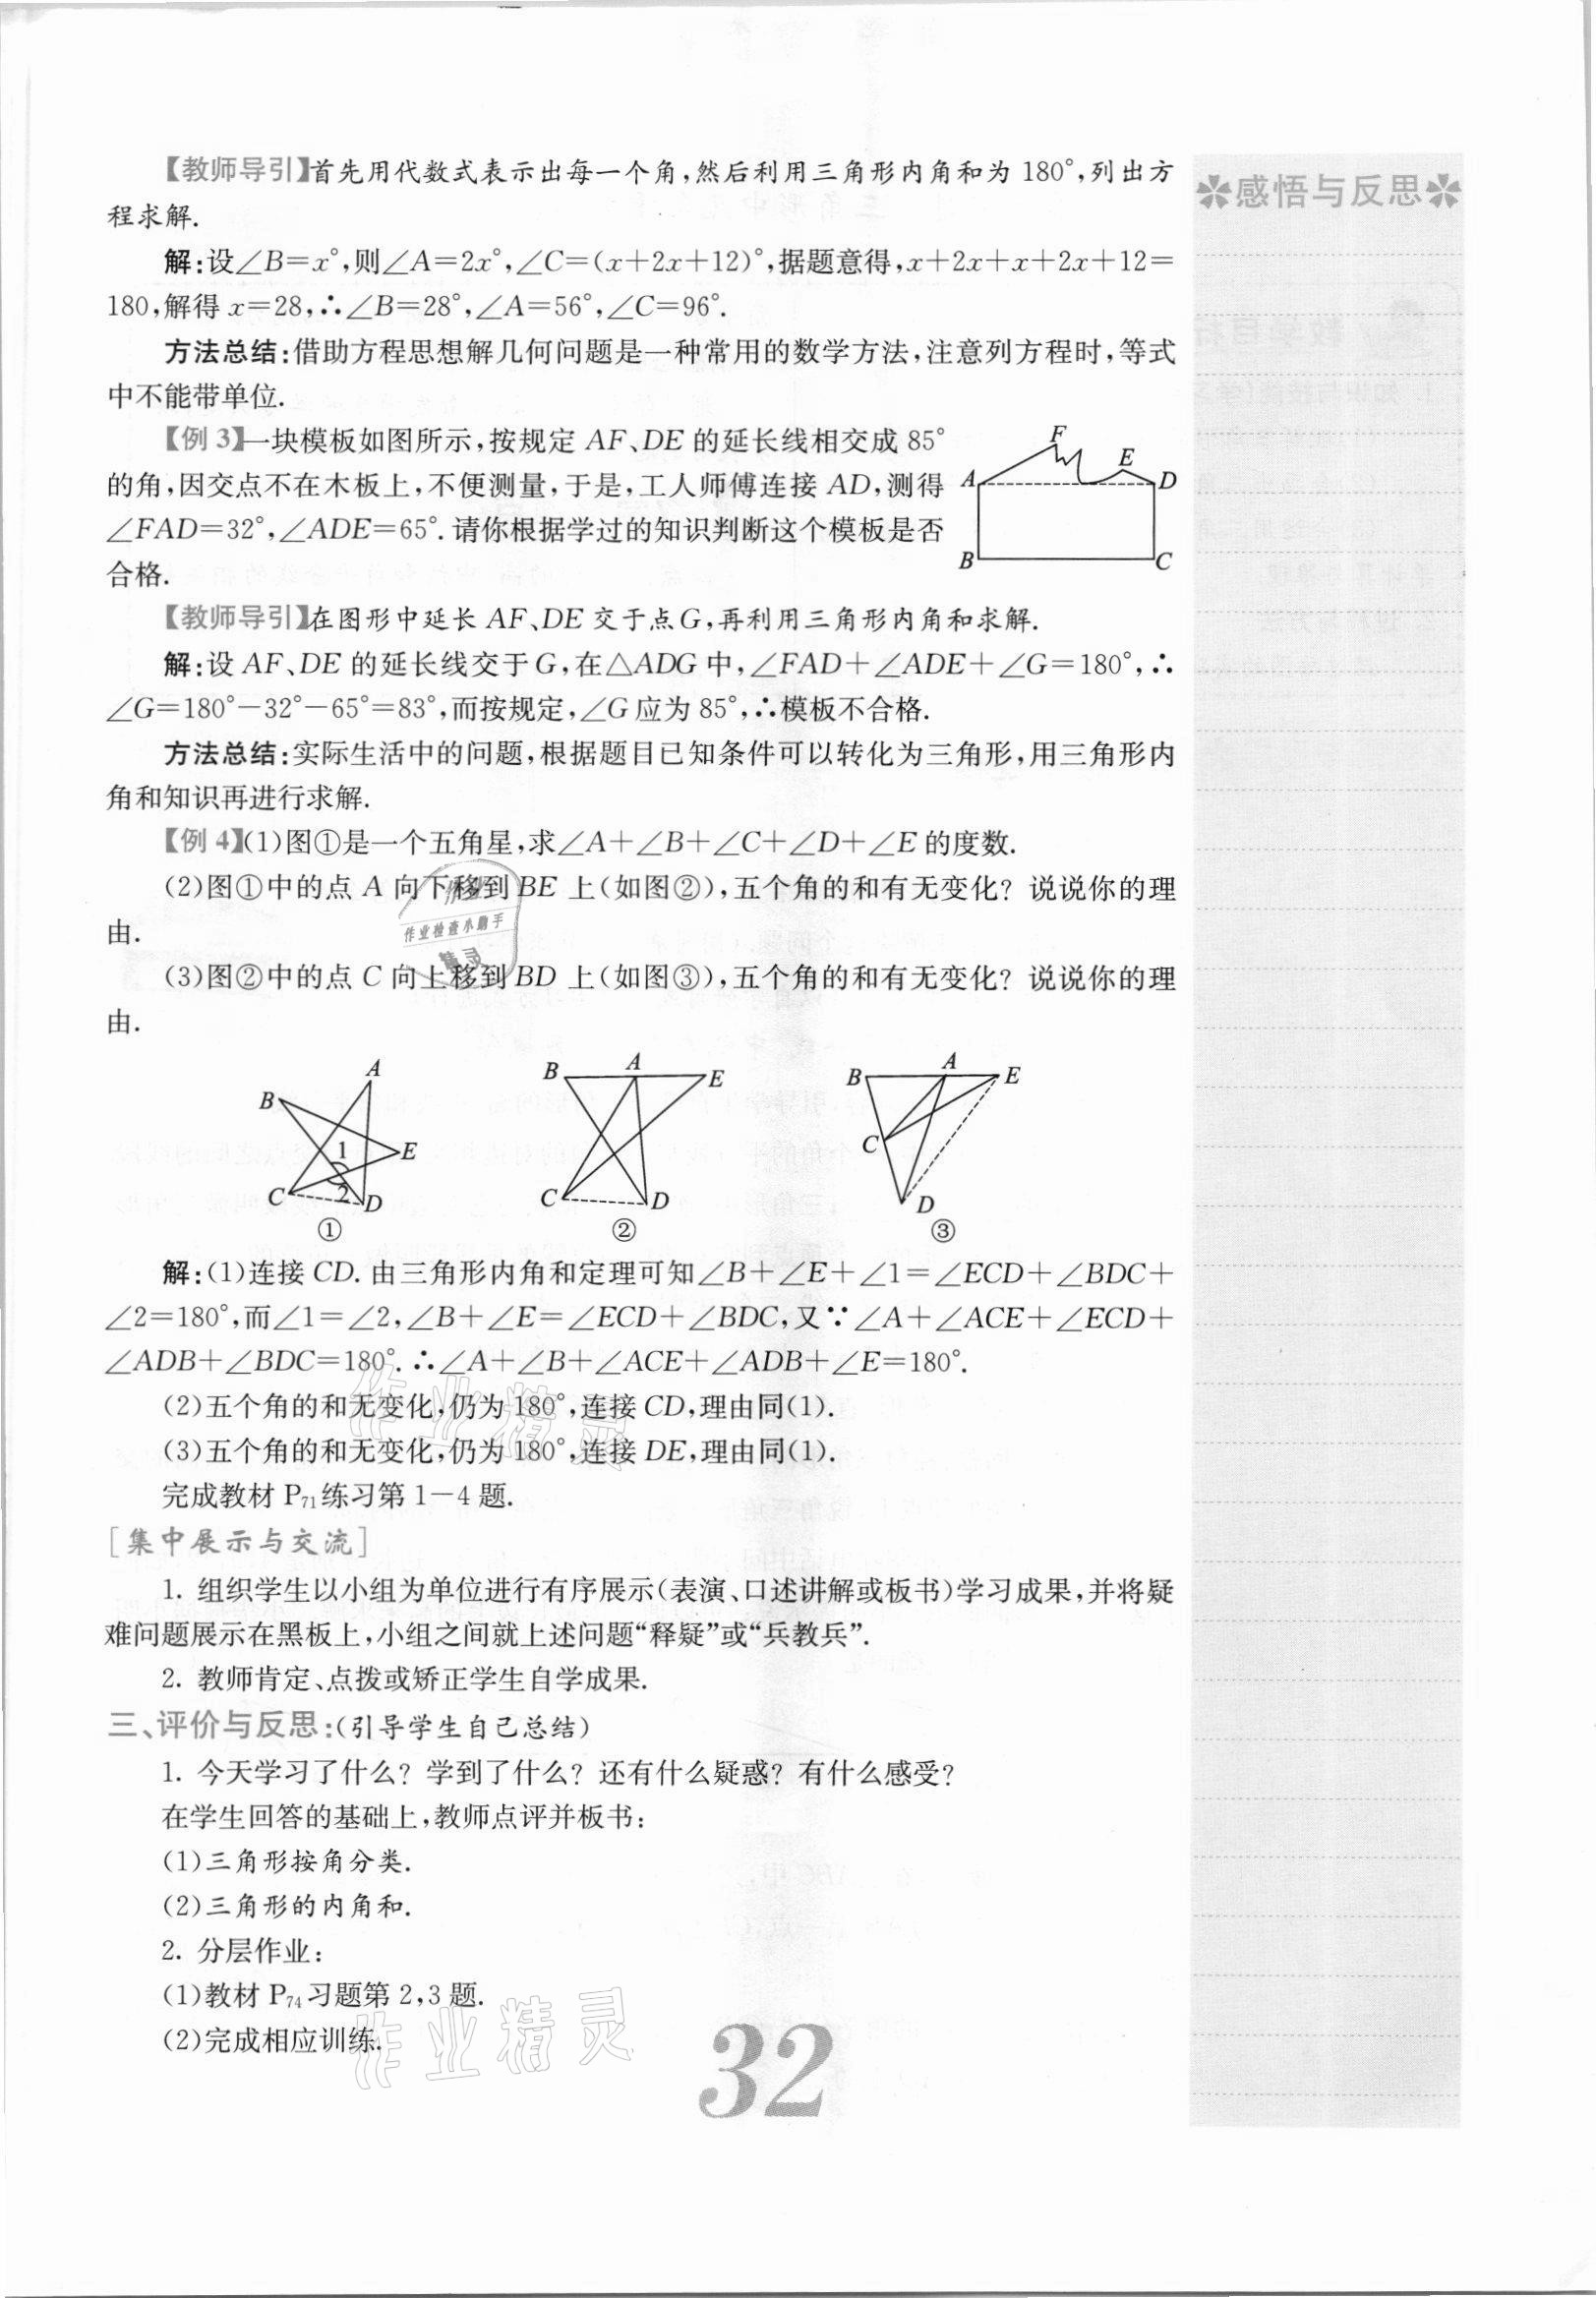 【教师导引】首先用代数式表示出每一个角,然后利用三角形内角和为 180°,列出方
程求解.
解:设∠B=x°,则∠A=2x°,∠C=(x+2x+12)°,据题意得,x+2x+x+2x+12=
180,解得 x=28,∴∠B=28°,∠A=56°,∠C=96°.
方法总结:借助方程思想解几何问题是一种常用的数学方法,注意列方程时,等式
中不能带单位.
【例 3】一块模板如图所示,按规定 AF、DE 的延长线相交成 85°
的角,因交点不在木板上,不便测量,于是,工人师傅连接 AD,测得
∠FAD=32°,∠ADE=65°.请你根据学过的知识判断这个模板是否
合格.
F
E
A
D
B
C
【教师导引】在图形中延长 AF、DE 交于点G,再利用三角形内角和求解.
解:设 AF、DE 的延长线交于 G,在△ADG 中,∠FAD+∠ADE+∠G=180°,∴
∠G=180°-32°-65°=83°,而按规定,∠G 应为 85°,∴模板不合格.
方法总结:实际生活中的问题,根据题目已知条件可以转化为三角形,用三角形内
角和知识再进行求解.
【例 4】(1)图①是一个五角星,求∠A+∠B+∠C+∠D+∠E 的度数.
(2)图①中的点 A 向下移到 BE 上(如图②),五个角的和有无变化? 说说你的理
由.
(3)图②中的点 C 向上移到 BD 上(如图③),五个角的和有无变化? 说说你的理
由.
作业检查小助手
精灵
A
B
1
E
C
2
D
①
B
A
E
C
D
②
B
A
E
C
D
③
解:(1)连接 CD. 由三角形内角和定理可知∠B+∠E+∠1=∠ECD+∠BDC+
∠2=180°,而∠1=∠2,∠B+∠E=∠ECD+∠BDC,又∵∠A+∠ACE+∠ECD+
∠ADB+∠BDC=180°.∴∠A+∠B+∠ACE+∠ADB+∠E=180°.
(2)五个角的和无变化,仍为 180°,连接 CD,理由同(1).
(3)五个角的和无变化,仍为 180°,连接 DE,理由同(1).
作业精灵
完成教材 P71练习第 1-4 题.
[集中展示与交流]
1. 组织学生以小组为单位进行有序展示(表演、口述讲解或板书)学习成果,并将疑
难问题展示在黑板上,小组之间就上述问题“释疑”或“兵教兵”.
2. 教师肯定、点拨或矫正学生自学成果.
三、评价与反思:(引导学生自己总结)
1. 今天学习了什么? 学到了什么? 还有什么疑惑? 有什么感受?
在学生回答的基础上,教师点评并板书:
(1)三角形按角分类.
(2)三角形的内角和.
2. 分层作业:
(1)教材 P74习题第 2,3 题.
(2)完成相应训练.
作业精灵
32
✽感悟与反思✽